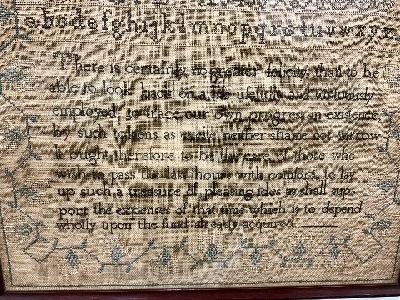 abcdefghijklmnopqrstuvwxyz
There is certainly no greater felicity, than to be
able to look back on a life usefully and virtuously
employed, to trace our own progress in existence,
by such tokens as excite neither shame nor sorrow
It ought therefore to be the care of those who
wish to pass the last hours with comfort, to lay
up such a treasure of pleasing ideas as shall sup-
port the expences of that time which is to depend
wholly upon the fund already acquired